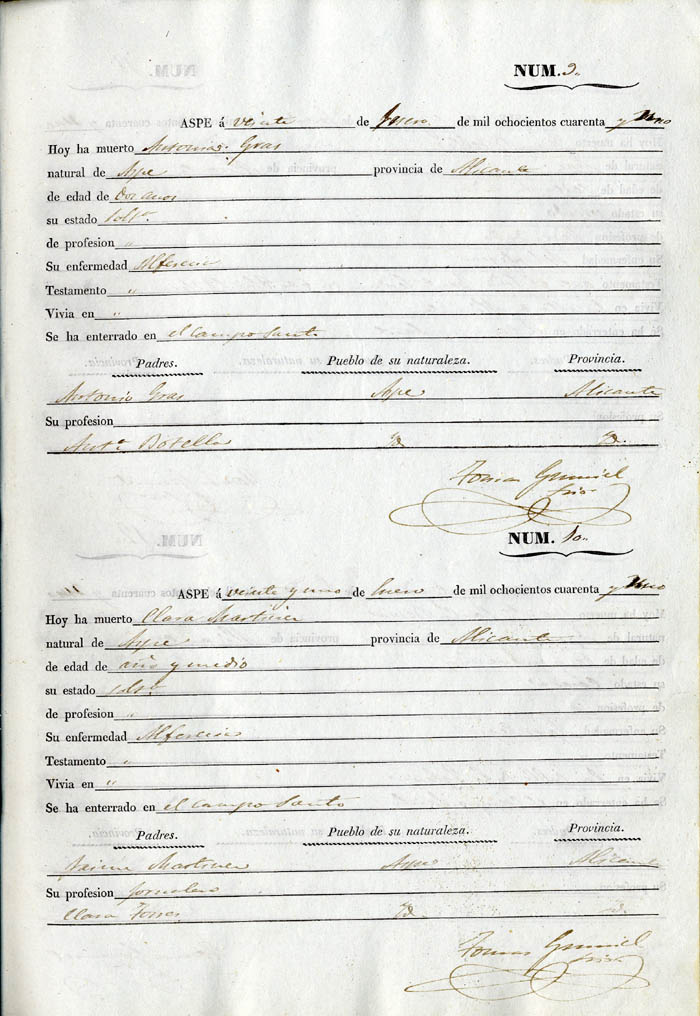 NUM. 9.
ASPE á veinte de Enero de mil ochocientos cuarenta y Uno
Hoy ha muerto Antonia Gras
natural de Aspe provincia de Alicante
de edad de dos años
su estado Solt.ª
de profesion "
Su enfermedad Alferecia
Testamento "
Vivia en "
Se ha enterrado en el Campo Sant.º
Padres. Pueblo de su naturaleza. Provincia.
Antonio Gras Aspe Alicante
Su profesion
Ant.ª Botella Yd. Yd.
Tomas
NUM. 10.
ASPE á veinte y uno de Enero de mil ochocientos cuarenta y Uno
Hoy ha muerto Clara Martinez
natural de Aspe provincia de Alicante
de edad de año y medio
su estado
de profesion "
Su enfermedad Alferecia
Testamento "
Vivia en "
Se ha enterrado en el Campo Santo
Padres. Pueblo de su naturaleza. Provincia.
Jaime Martinez Aspe Alicante
Su profesion Jornalero
Clara Torres Yd. Yd.
Tomas